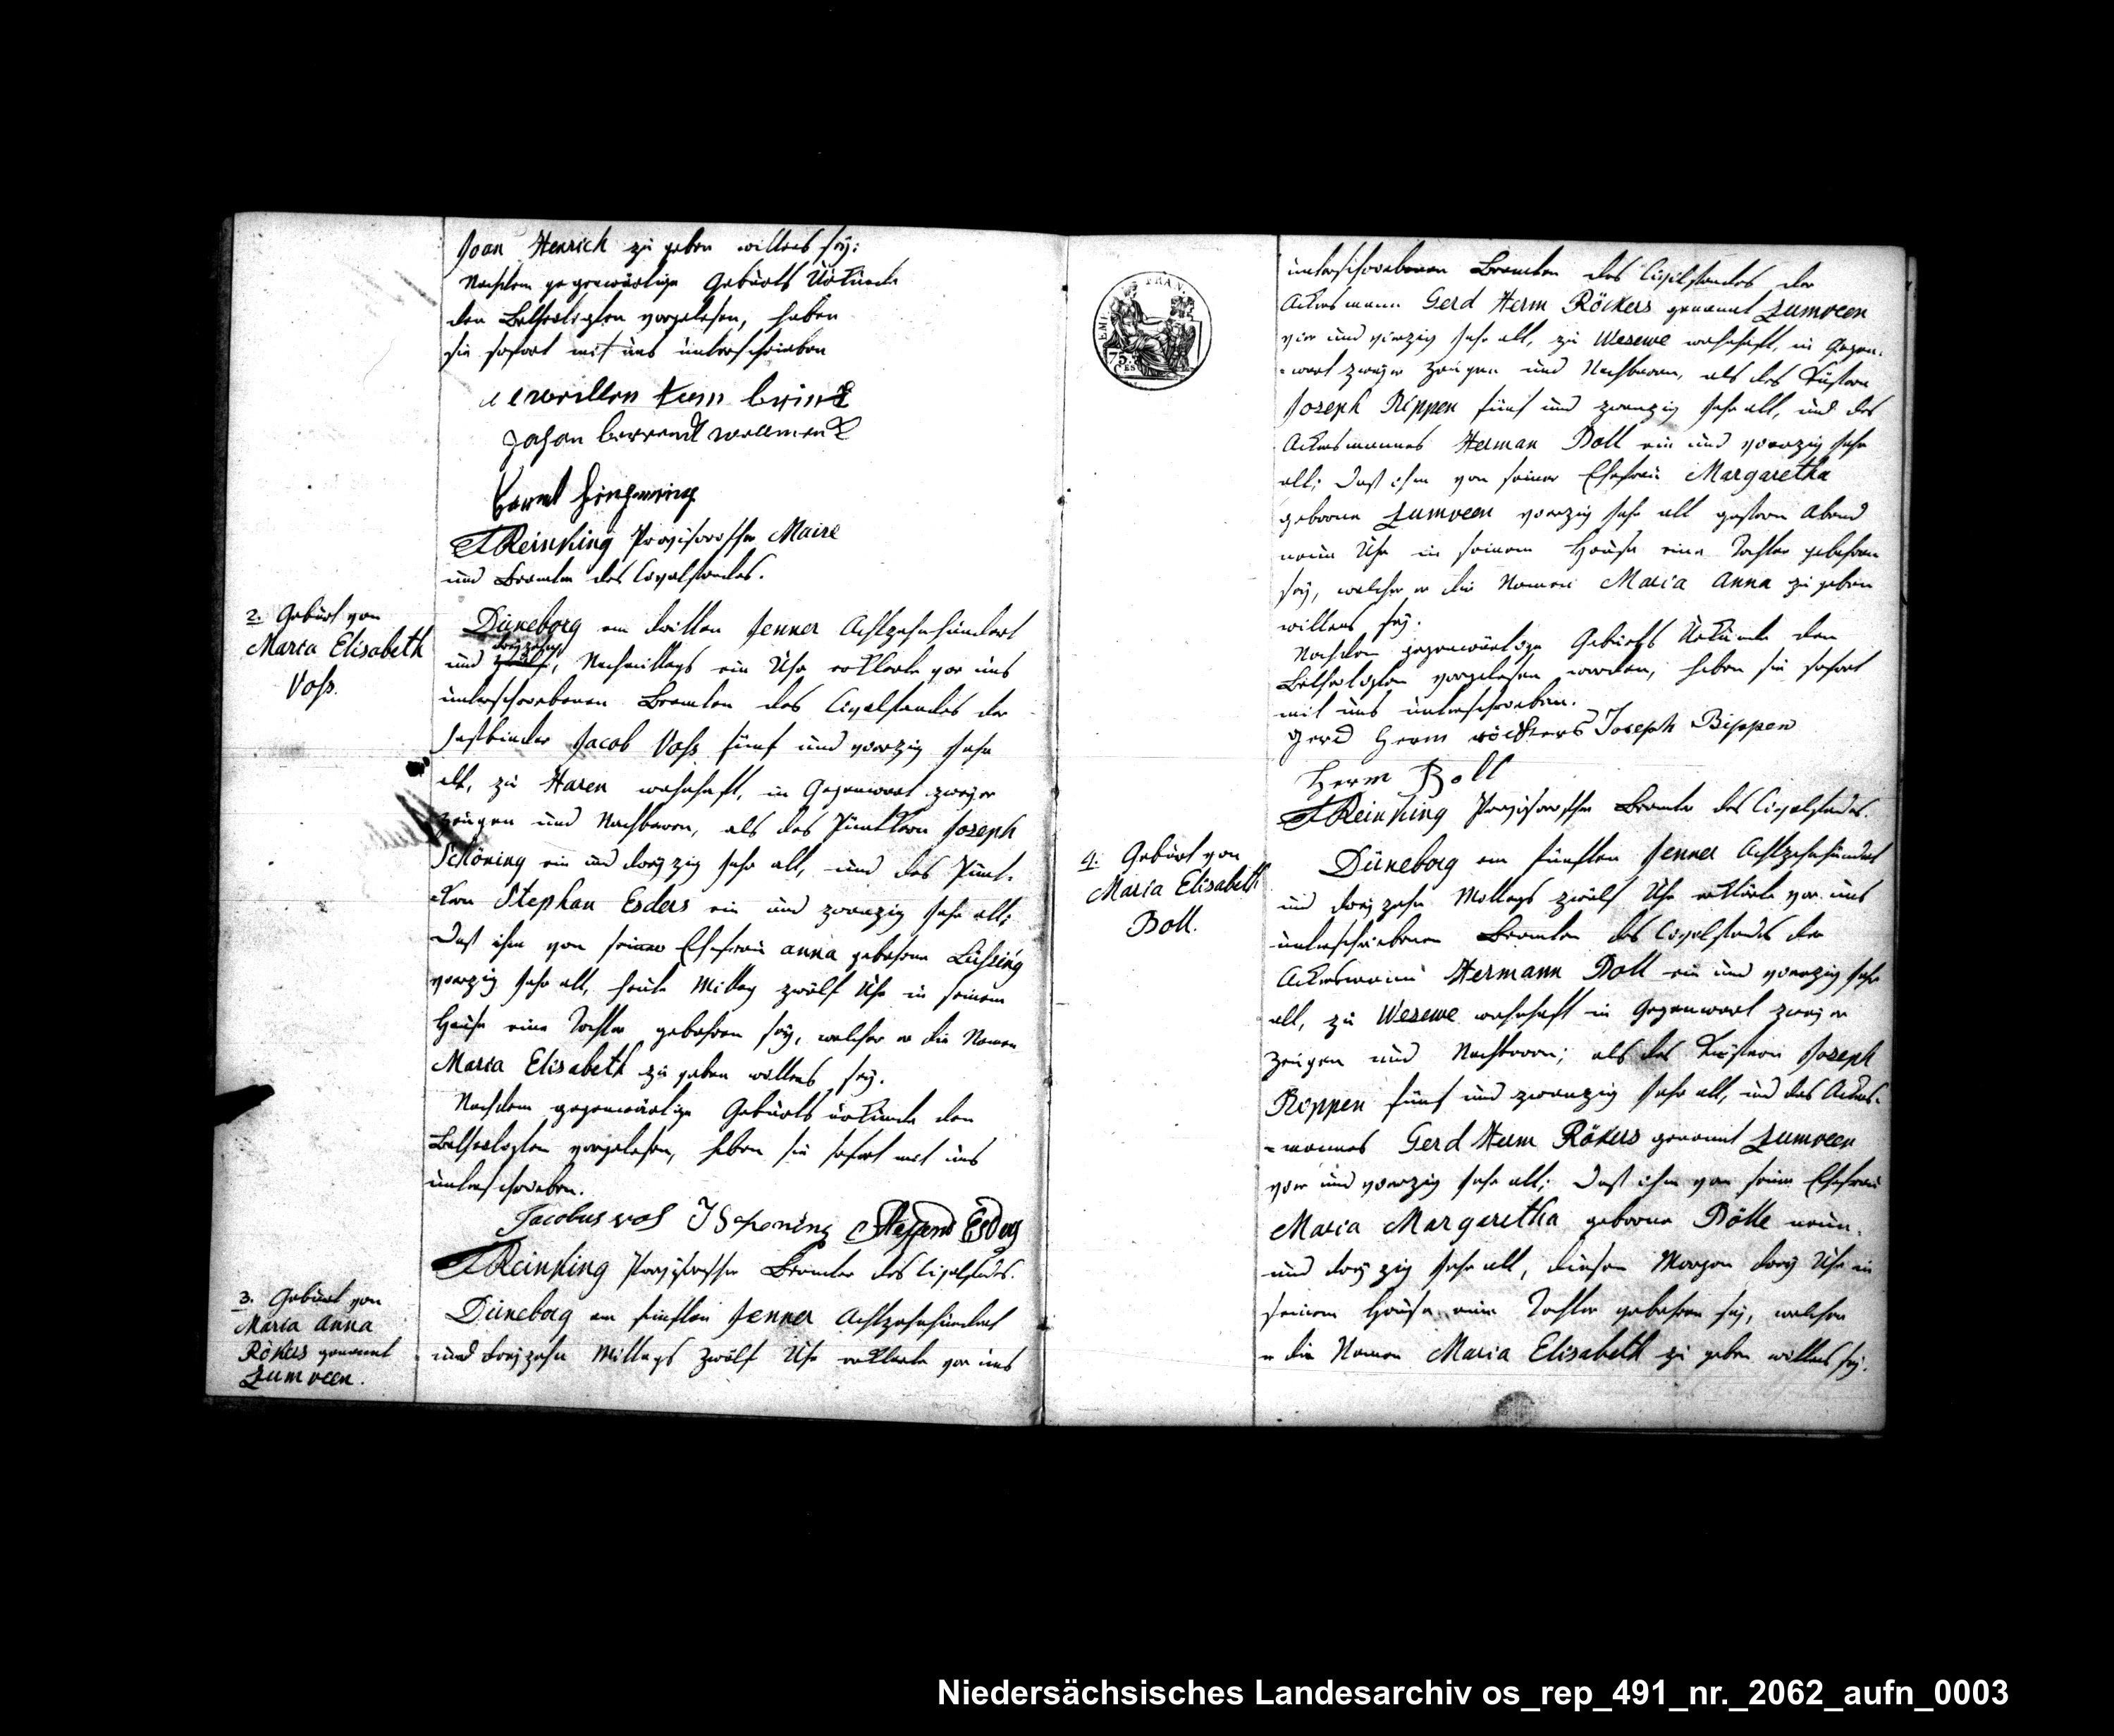 Joan Henrich zu geben willens sey:
Nachdem gegenwärtige Geburts Urkunde
den Betheiligten vorgelesen, haben
sie sofort mit uns unterschrieben
willen tum brink
Johan berrendt
Bernd
Reinking Provisorischer Maire
und Beamter des Civilstandes.
2. Geburt von
Maria Elisabeth
Voß.
Düneborg am dritten Jenner Achtzehnhundert
dreyzehn
und zwölf, Nachmittags ein Uhr erklärte vor uns
unterschriebenen Beamten des Civilstandes der
Faßbinder Jacob Voß fünf und vierzig Jahr
alt, zu Haren wohnhaft, in Gegenwart zweyer
Zeugen und Nachbaren, als des Püntkern Joseph
Schöning ein und dreyzig Jahr alt, und des Pünt-
kern Stephan Esders ein und zwanzig Jahr alt;
Daß ihm von seiner Ehefrau Anna gebohrne Lüssing
vierzig Jahr alt, heute Mittag zwölf Uhr in seinem
Hause eine Tochter gebohren sey, welcher er die Namen
Maria Elisabeth zu geben willens sey.
Nachdem gegenwärtige Geburts Urkunde den
Betheiligten vorgelesen, haben sie sofort mit uns
unterschrieben.
Jacobus vos J Schöning Stefans Esders
Reinking Provisorischer Beamter des Civilstandes.
3. Geburt von
Maria Anna
Rökers genannt
Zumveen.
Düneborg am fünften Jenner Achtzehnhundert
und dreyzehn Mittags zwölf Uhr erklärte vor uns
EMP. FRAN.
75.
CES
unterschriebenen Beamten des Civilstandes der
Ackersmann Gerd Herm Röckers genannt Zumveen
vier und vierzig Jahr alt, zu Wesewe wohnhaft, in Gegen-
-wart zweyer Zeugen und Nachbaren, als des Küstern
Joseph Bippen fünf und zwanzig Jahr alt, und des
Ackersmannes Herman Boll ein und vierzig Jahr
alt; Daß ihm von seiner Ehefrau Margaretha
geborne Zumveen vierzig Jahr alt gestern Abend
neun Uhr in seinem Hause eine Tochter gebohren
sey, welcher er die Namen Maria Anna zu geben
willens sey.
Nachdem gegenwärtige Geburts Urkunde den
Betheiligten vorgelesen worden, haben sie sofort
mit uns unterschrieben.
gerd Herm röckers Joseph Bippen
Herm Boll
Reinking Provisorischer Beamte des Civilstandes.
4. Geburt von
Maria Elisabeth
Boll.
Düneborg am fünften Jenner Achtzehnhundert
und dreyzehn Mittags zwölf Uhr erklärte vor uns
unterschriebenen Beamten des Civilstandes der
Ackersmann Hermann Boll ein und vierzig Jahr
alt, zu Wesewe wohnhaft in Gegenwart zweyer
Zeugen und Nachbaren; als des Küstern Joseph
Bippen fünf und zwanzig Jahr alt, und des Ackers-
-mannes Gerd Herm Rökers genannt Zumveen
vier und vierzig Jahr alt; Daß ihm von seiner Ehefrau
Maria Margaretha geborne Bölle neun
und dreyzig Jahr alt, diesen Morgen drey Uhr in
seinem Hause eine Tochter gebohren sey, welcher
er die Namen Maria Elisabeth zu geben willens sey.
Niedersächsisches Landesarchiv os_rep_491_nr._2062_aufn_0003